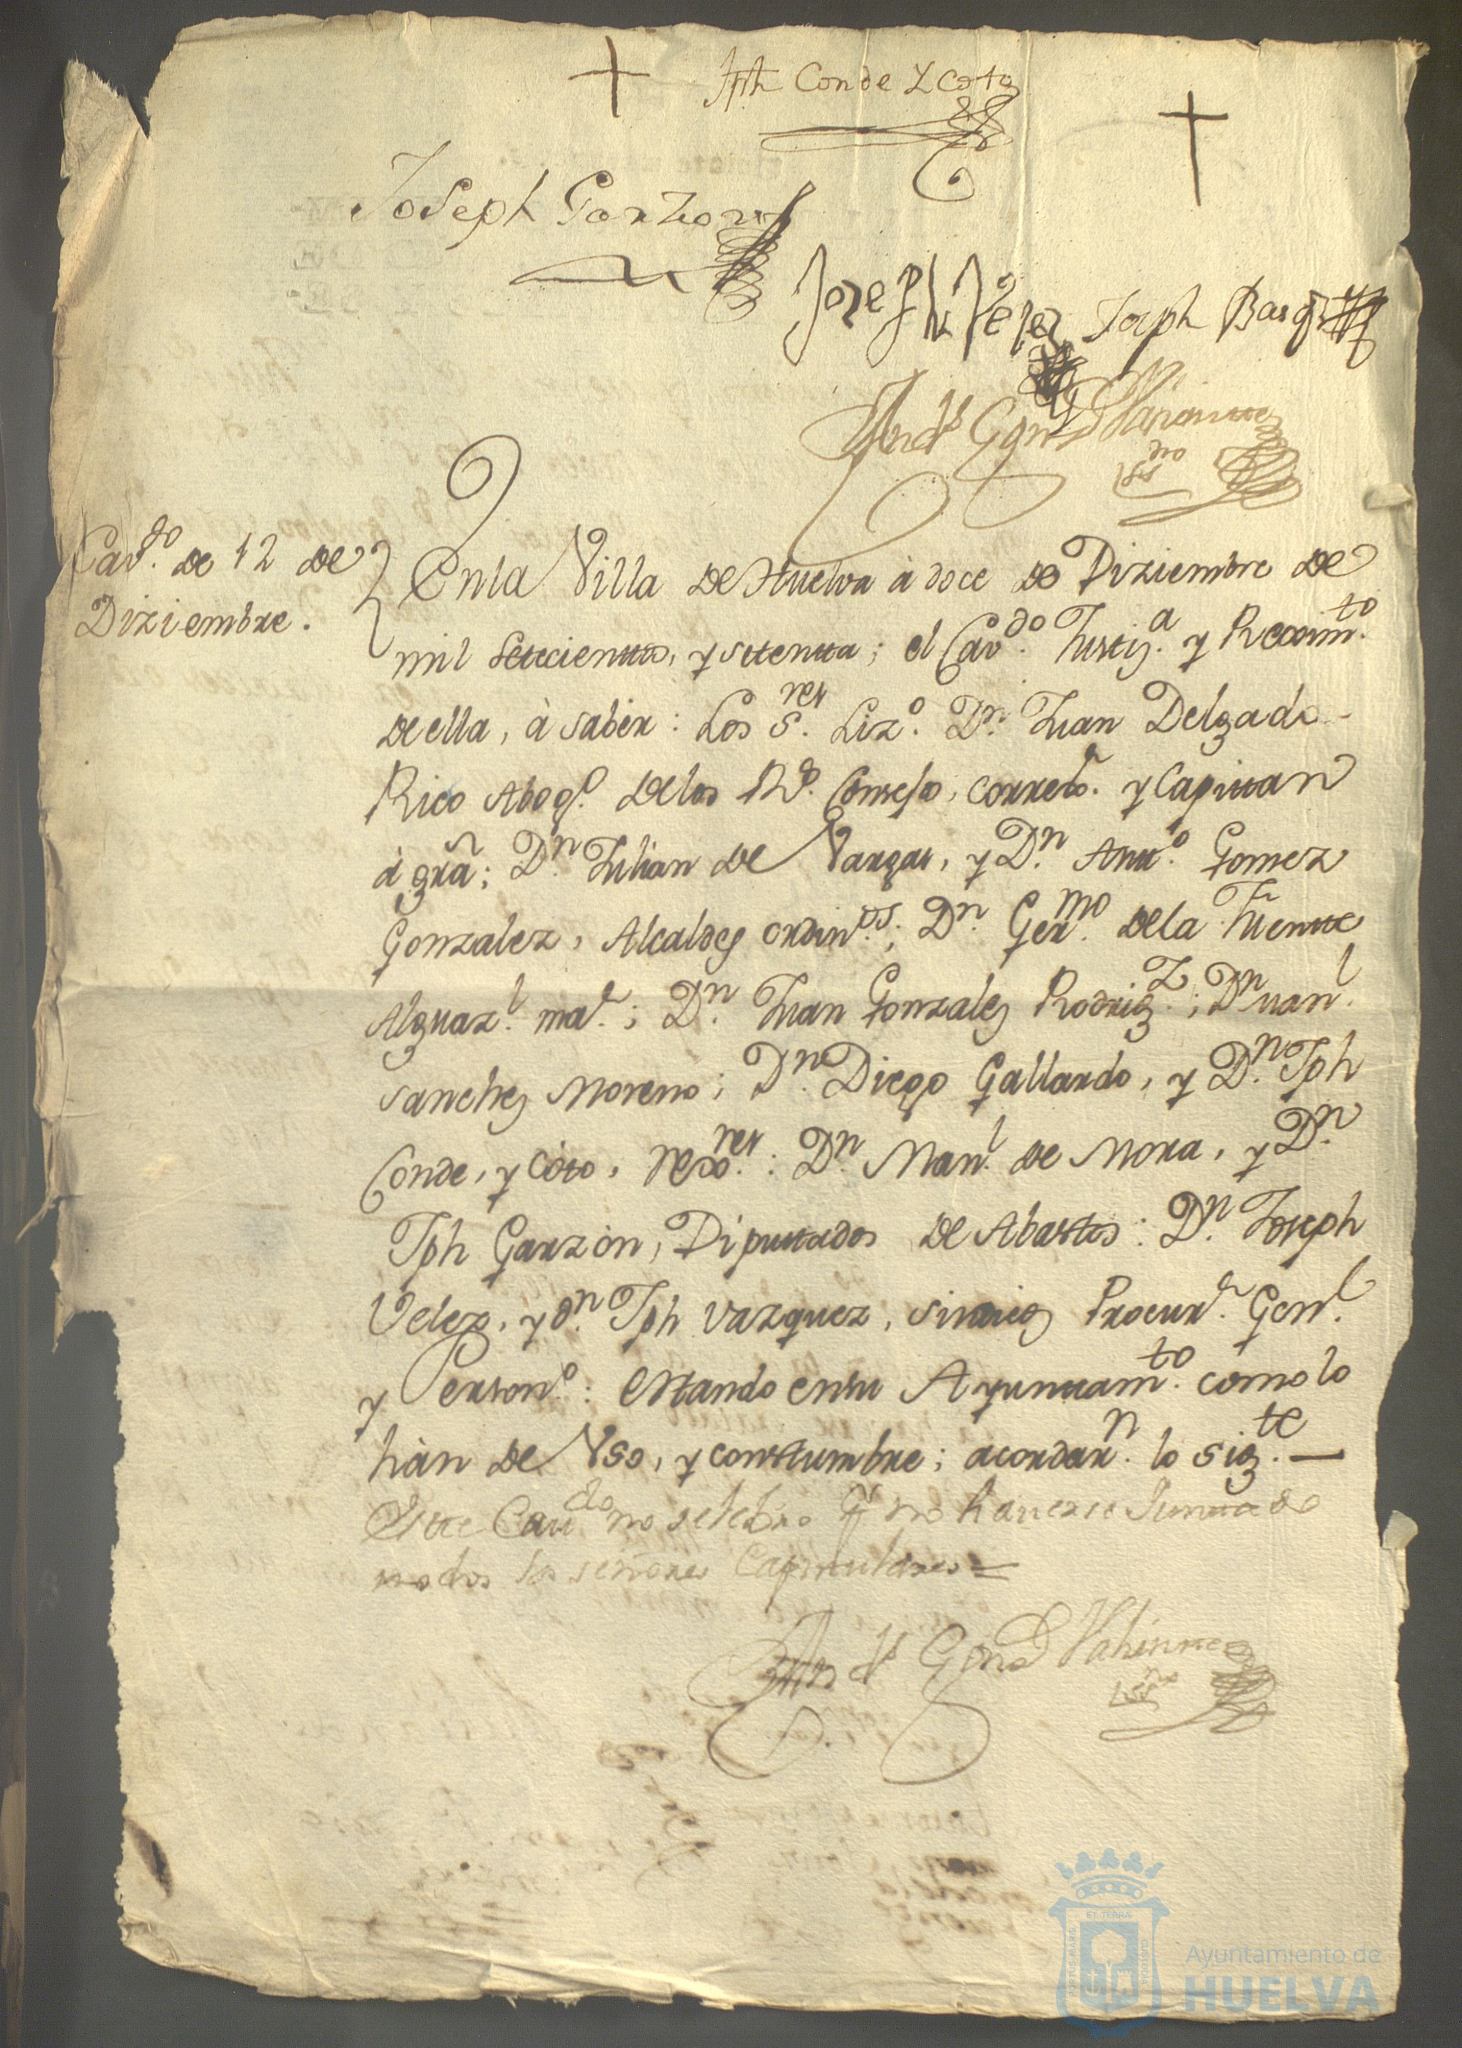 Jph Conde Y Coto
Joseph Garzon
Joseph Velez Joseph Basq
Cav.do de 12 de
Diziembre.
En la Villa de Huelva à doce de Diziembre de
mil setecientos, y setenta; el Cav.do Justiz.a y Reximi.to
de ella, à saber: Los S.res Liz.o D.n Juan Delgado
Rico Abog.o de los R.s Consejo, correx.r y Capitan
à grã; D.n Julian de Vargas, y D.n Ant.o Gomez
Gonzalez, Alcaldes ordin.os; D.n Ger.mo de la Fuente
Alguaz.l ma.r; D.n Juan Gonzales Rodrig.z; D.n uan.l
Sanches Moreno; D.n Diego Gallardo, y D.n Jph
Conde, y Coto, rexo.res: D.n Man.l de Mora, y D.n
Jph Garzon, Diputados de Abastos: D.n Joseph
Velez, y d.n Jph Vazquez, sindicos Procur.r Gen.l
y Person.o: estando en su Ayuntam.to como lo
hàn de Uso, y constumbre; acordar.n lo sig.te
Este Cau.do no se lebro Pr no haverse Juntado
todos los señores Capitulares =
PORTUS MARIS
ET TERRAE
CUSTODIA
Ayuntamiento de
HUELVA